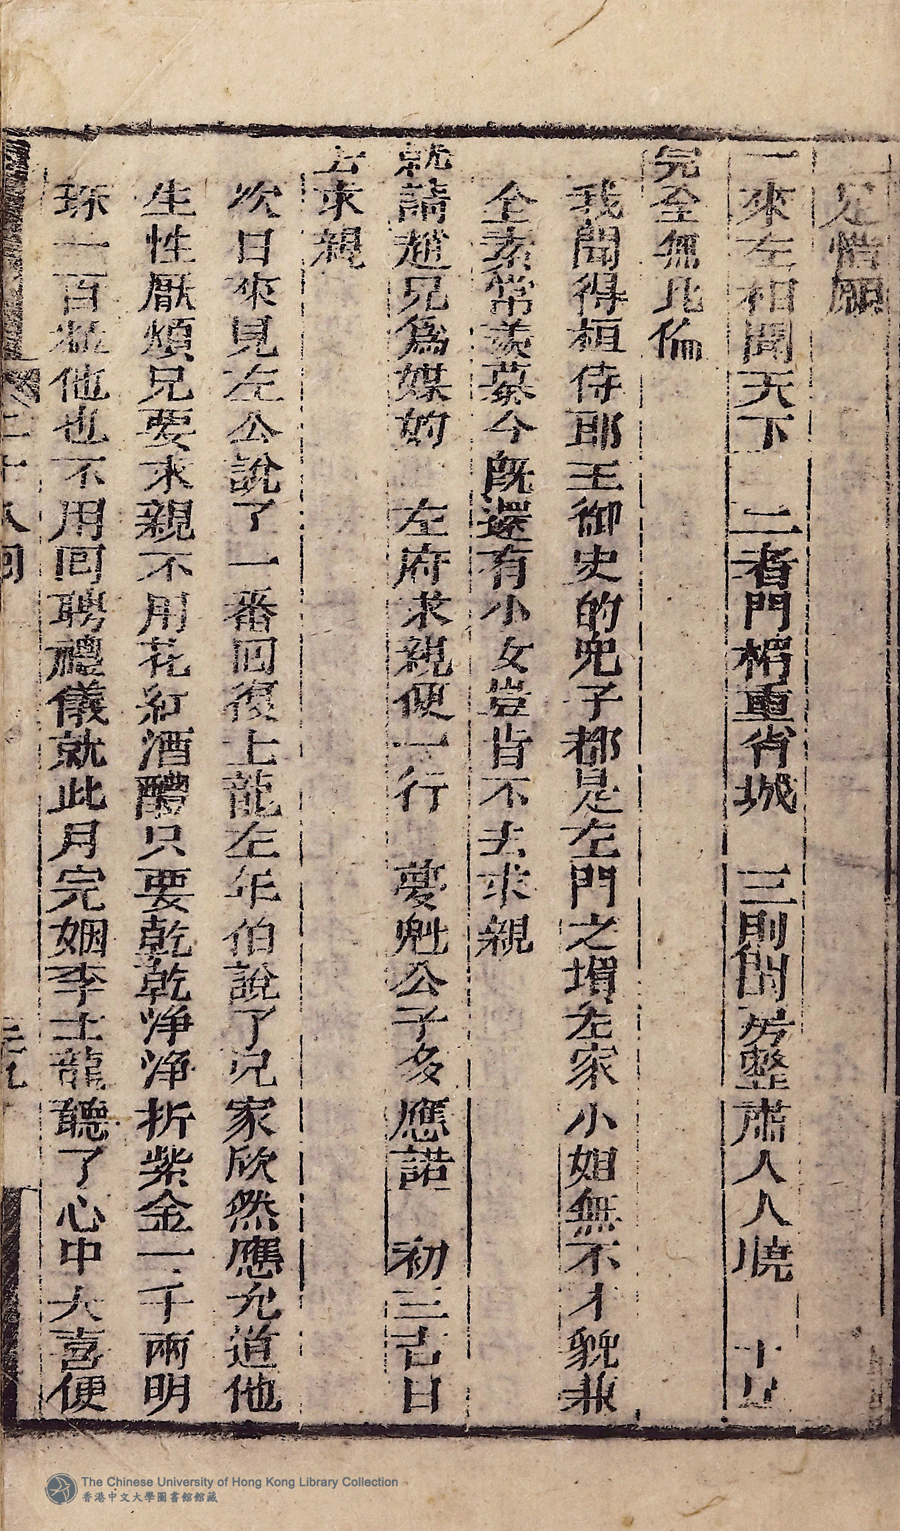 足惜願
一來左相聞天下 二者門楣重省城 三則閨房整肅人人曉 十足
完全無比倫
我聞得桓侍郎王御史的兒子都是左門之壻左家小姐無不才貌兼
全素常羨慕今既還有小女豈肯不去求親
就請趙兄爲媒妁 左府求親便一行 夢魁公子多應諾 初三吉日
去求親
次日來見左公說了一番回復士龍左年伯說了兄家欣然應允道他
生性厭煩兄要求親不用花紅酒醴只要乾乾淨淨折紫金一千兩明
珠一百粒他也不用回聘禮儀就此月完姻李士龍聽了心中大喜便
二十八回
The Chinese University of Hong Kong Library Collection
香港中文大學圖書館館藏